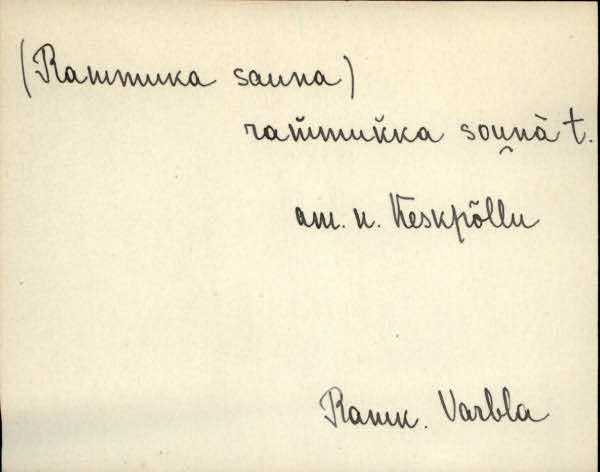 (Rammuka sauna)
ram̆mŭkka sou̯nà t.
am. n. Keskpõllu
Ramk. Varbla